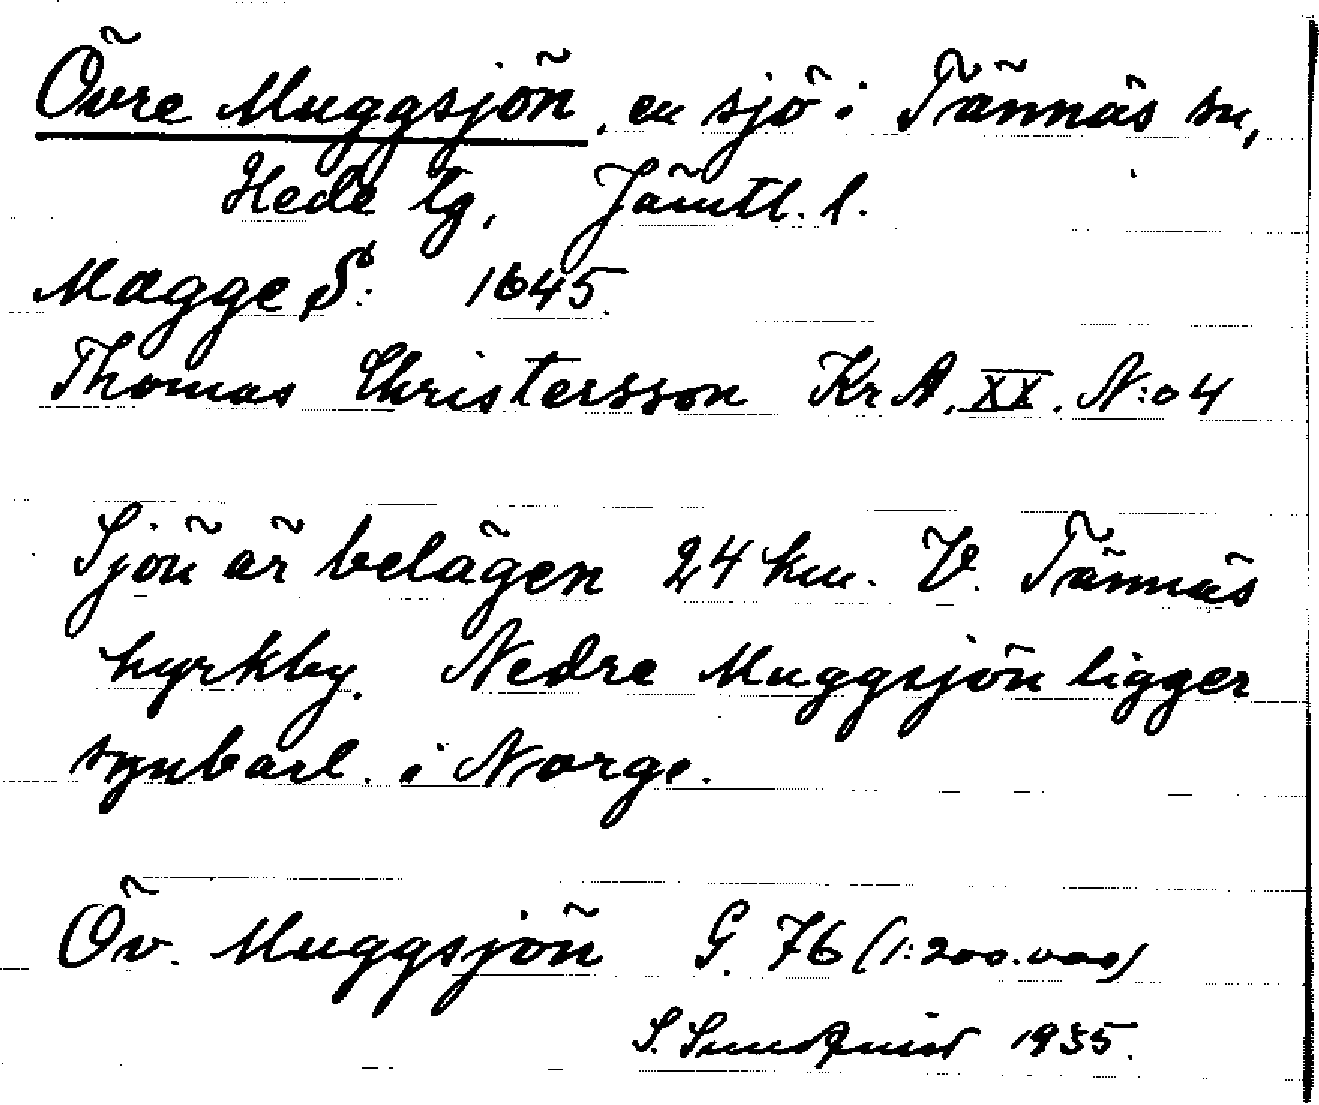 Övre Muggsjön, en sjö i Tännäs sn,
Hede tg, Jämtl. l.
Magge S: 1645
Thomas Christersson Kr A. XX. N:o 4
Sjön är belägen 24 km. V. Tännäs
kyrkby. Nedre Muggsjön ligger
synbarl. i Norge.
Öv. Muggsjön G. 76 (1:200.000)
S. Sundqvist 1935.